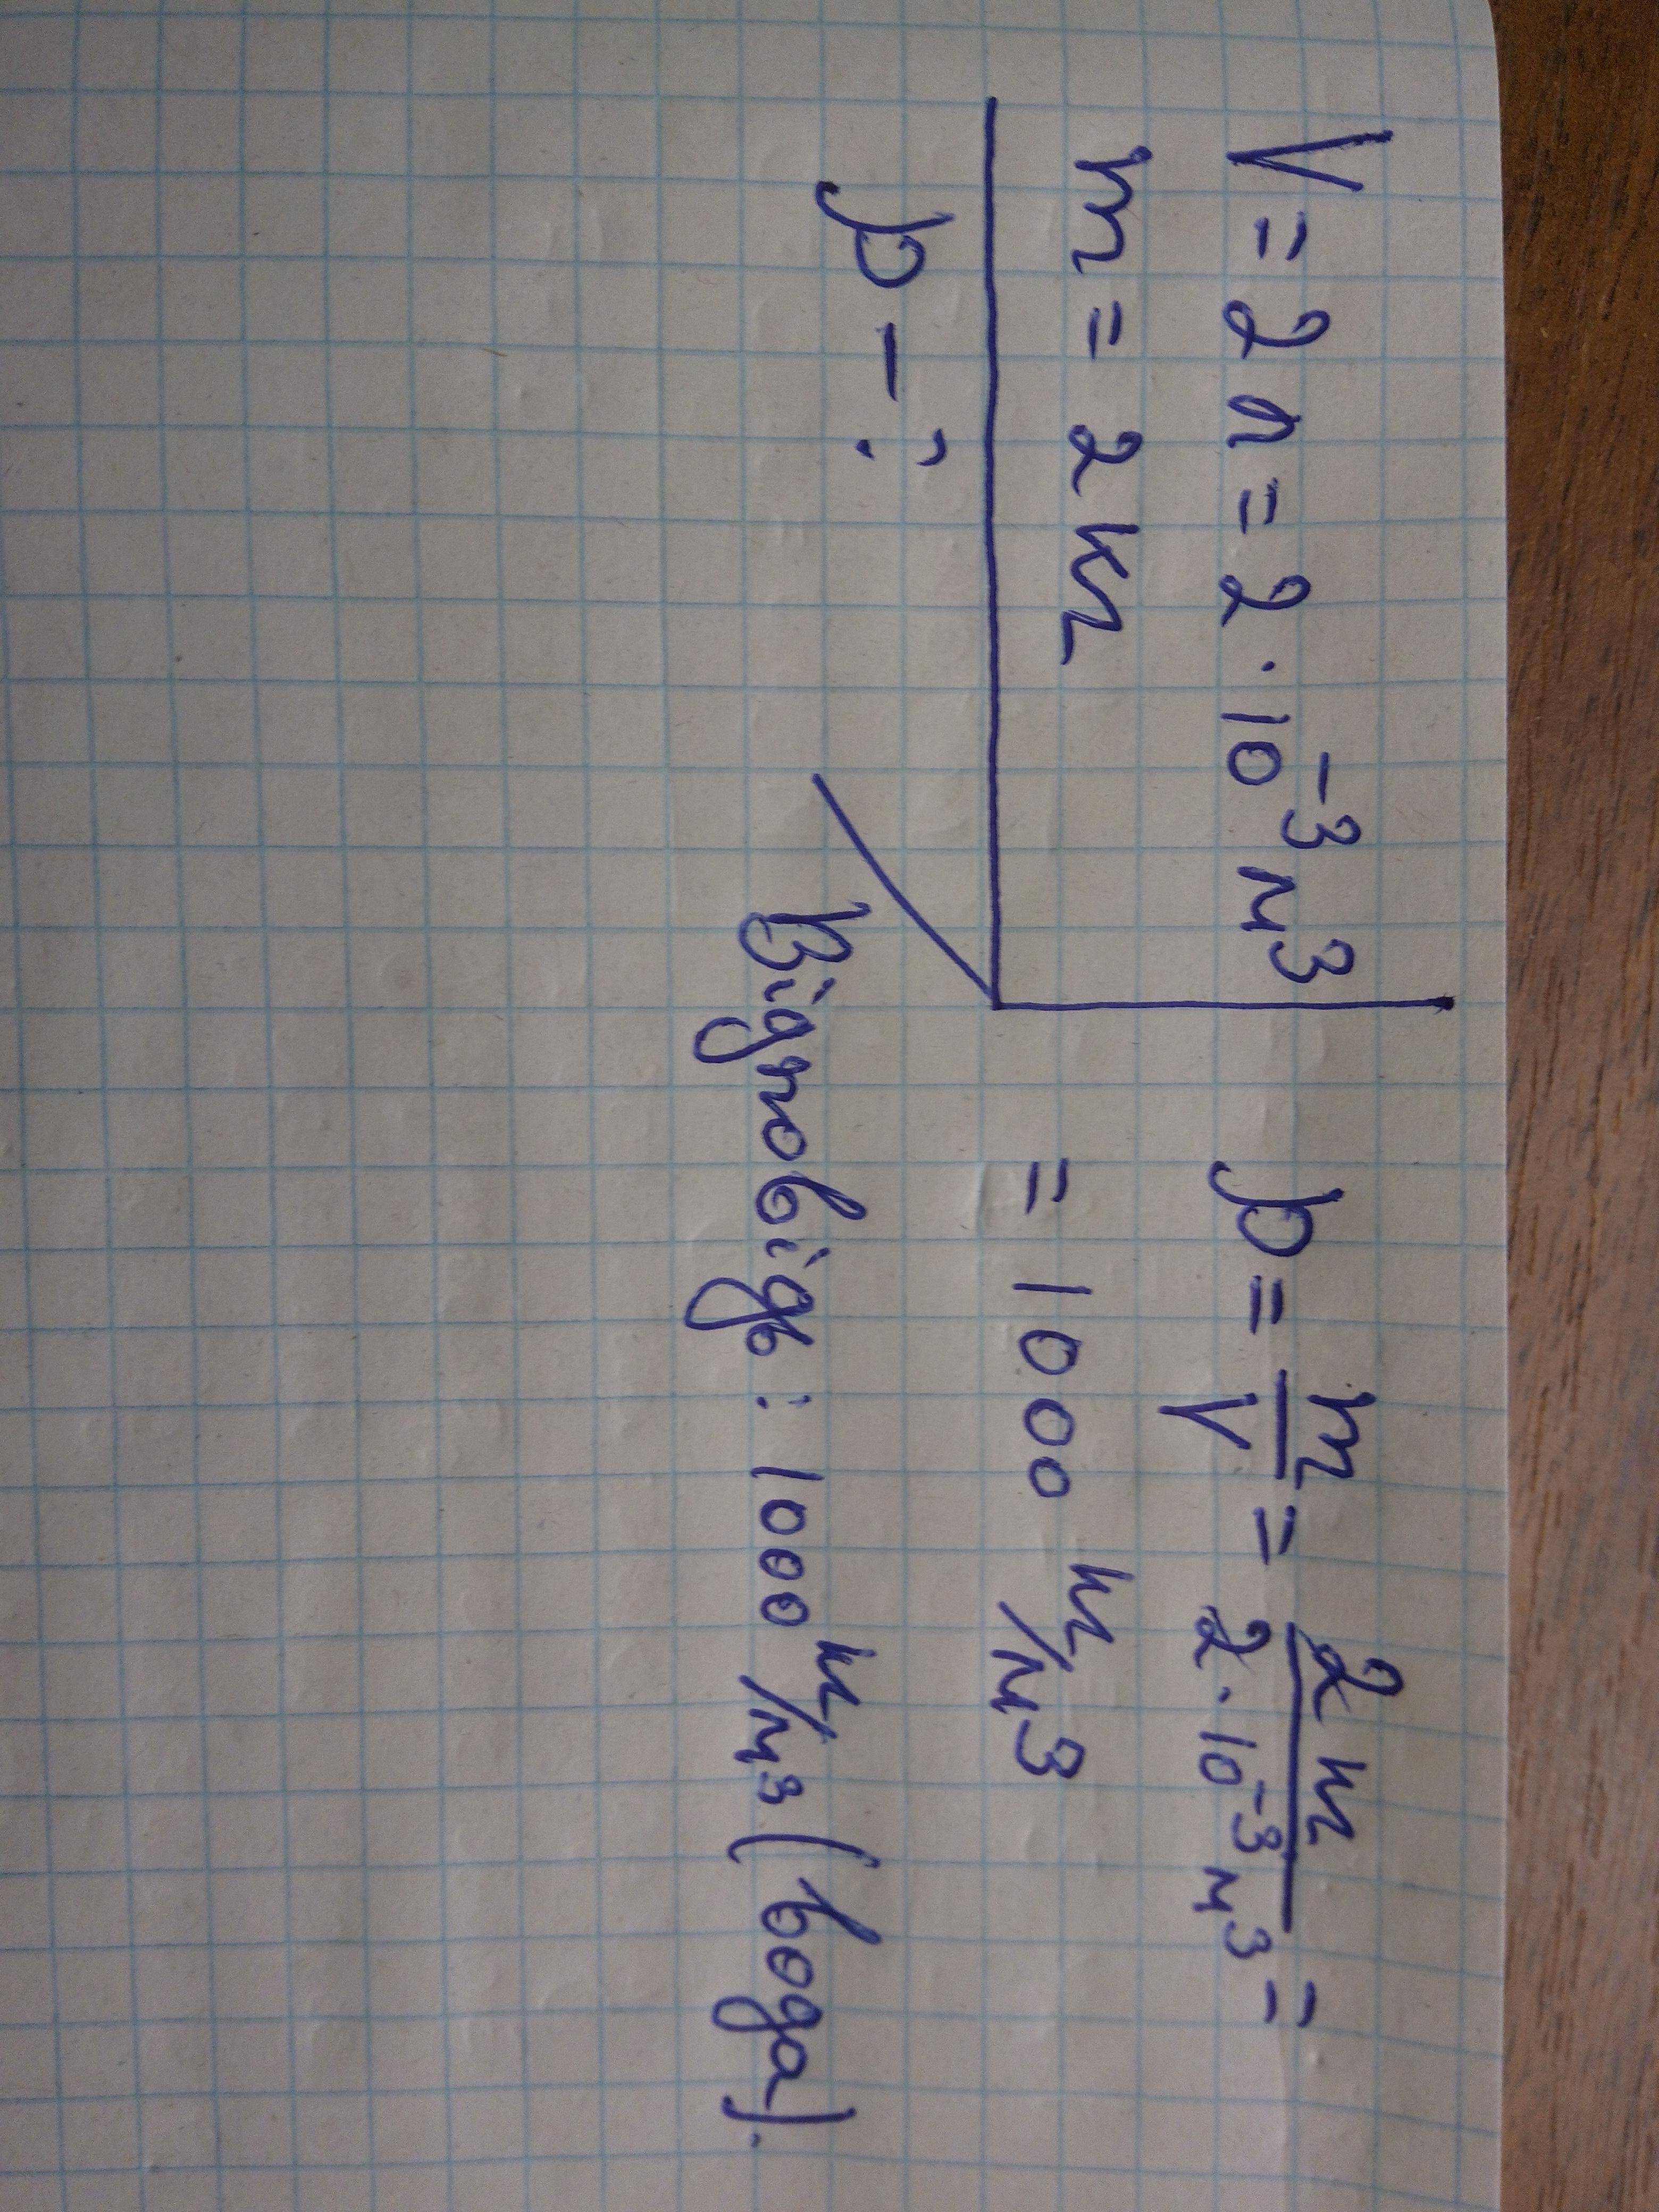 V = 2 л = 2 · 10⁻³ м³
m = 2 кг
ρ - ?
ρ = m/V = 2 кг / 2 · 10⁻³ м³ =
= 1000 кг/м³
Відповідь: 1000 кг/м³ (вода).